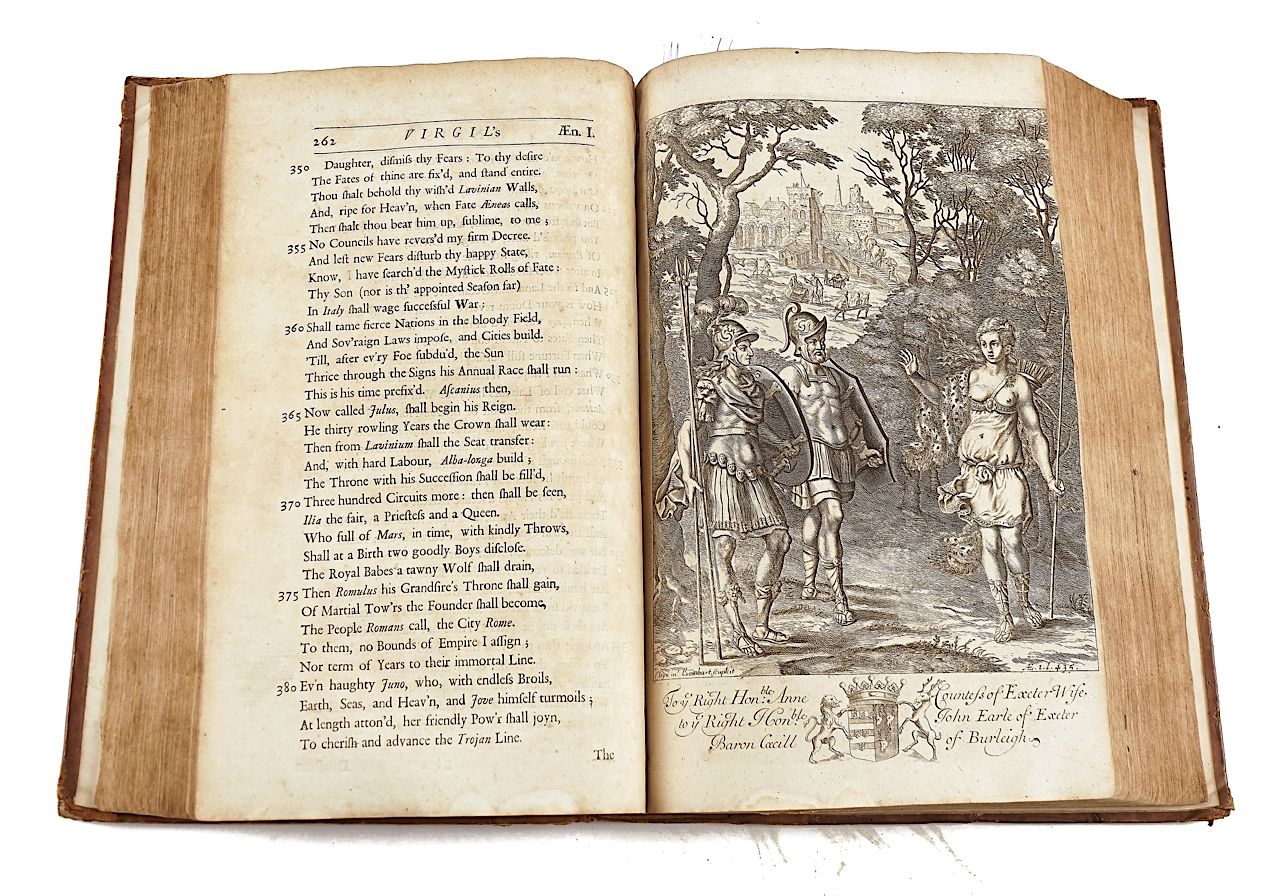 262 VIRGIL's Æn. I.
350 Daughter, diſmiſs thy Fears : To thy deſire
The Fates of thine are fix'd, and ſtand entire.
Thou ſhalt behold thy wiſh'd Lavinian Walls,
And, ripe for Heav'n, when Fate Æneas calls,
Then ſhalt thou bear him up, ſublime, to me ;
355 No Councils have revers'd my firm Decree.
And leſt new Fears diſturb thy happy State,
Know, I have ſearch'd the Myſtick Rolls of Fate :
Thy Son (nor is th' appointed Seaſon far)
In Italy ſhall wage ſucceſsful War ;
360 Shall tame fierce Nations in the bloody Field,
And Sov'raign Laws impoſe, and Cities build.
'Till, after ev'ry Foe ſubdu'd, the Sun
Thrice through the Signs his Annual Race ſhall run :
This is his time prefix'd. Aſcanius then,
365 Now called Julus, ſhall begin his Reign.
He thirty rowling Years the Crown ſhall wear :
Then from Lavinium ſhall the Seat transfer :
And, with hard Labour, Alba-longa build ;
The Throne with his Succeſſion ſhall be fill'd,
370 Three hundred Circuits more : then ſhall be ſeen,
Ilia the fair, a Prieſteſs and a Queen.
Who full of Mars, in time, with kindly Throws,
Shall at a Birth two goodly Boys diſcloſe.
The Royal Babes a tawny Wolf ſhall drain,
375 Then Romulus his Grandſire's Throne ſhall gain,
Of Martial Tow'rs the Founder ſhall become,
The People Romans call, the City Rome.
To them, no Bounds of Empire I aſſign ;
Nor term of Years to their immortal Line.
380 Ev'n haughty Juno, who, with endleſs Broils,
Earth, Seas, and Heav'n, and Jove himſelf turmoils ;
At length atton'd, her friendly Pow'r ſhall joyn,
To cheriſh and advance the Trojan Line.
The
Bombart, ſculpſit
Æ. 1. l. 435.
To yͤ Right Honble: Anne Counteſs of Exeter Wife
to yͤ Right Honble John Earle of Exeter
Baron Cæcill of Burleigh